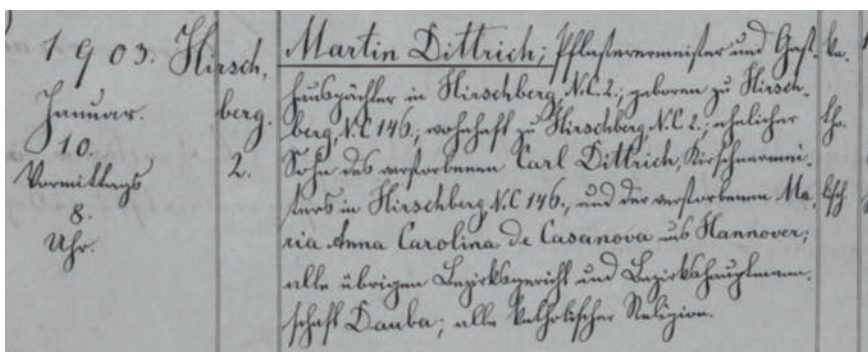 1903. Januar. 10. Vormittags 8. Uhr.
Hirsch-
berg.
2.
Martin Dittrich; Pflasterermeister und Gast-
hauspächter in Hirschberg, N.C. 2.; geboren zu Hirsch-
berg, N.C 146.; wohnhaft zu Hirschberg N.C 2.; ehelicher
Sohn des verstorbenen Carl Dittrich, Kirschnermei-
sters in Hirschberg, N.C 146., und der verstorbenen Ma-
ria Anna Carolina de Casanova aus Hannover;
alle übrigen Bezirksgericht und Bezirkshauptmann-
schaft Dauba; alle katholischer Religion.
ka-
tho-
lisch